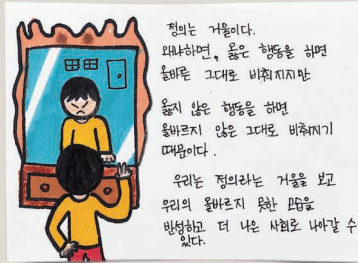 정의는 거울이다.
왜냐하면, 옳은 행동을 하면
올바른 그대로 비춰지지만
옳지 않은 행동을 하면
올바르지 않은 그대로 비춰지기
때문이다.
우리는 정의라는 거울을 보고
우리의 올바르지 못한 모습을
반성하고 더 나은 사회로 나아갈 수
있다.